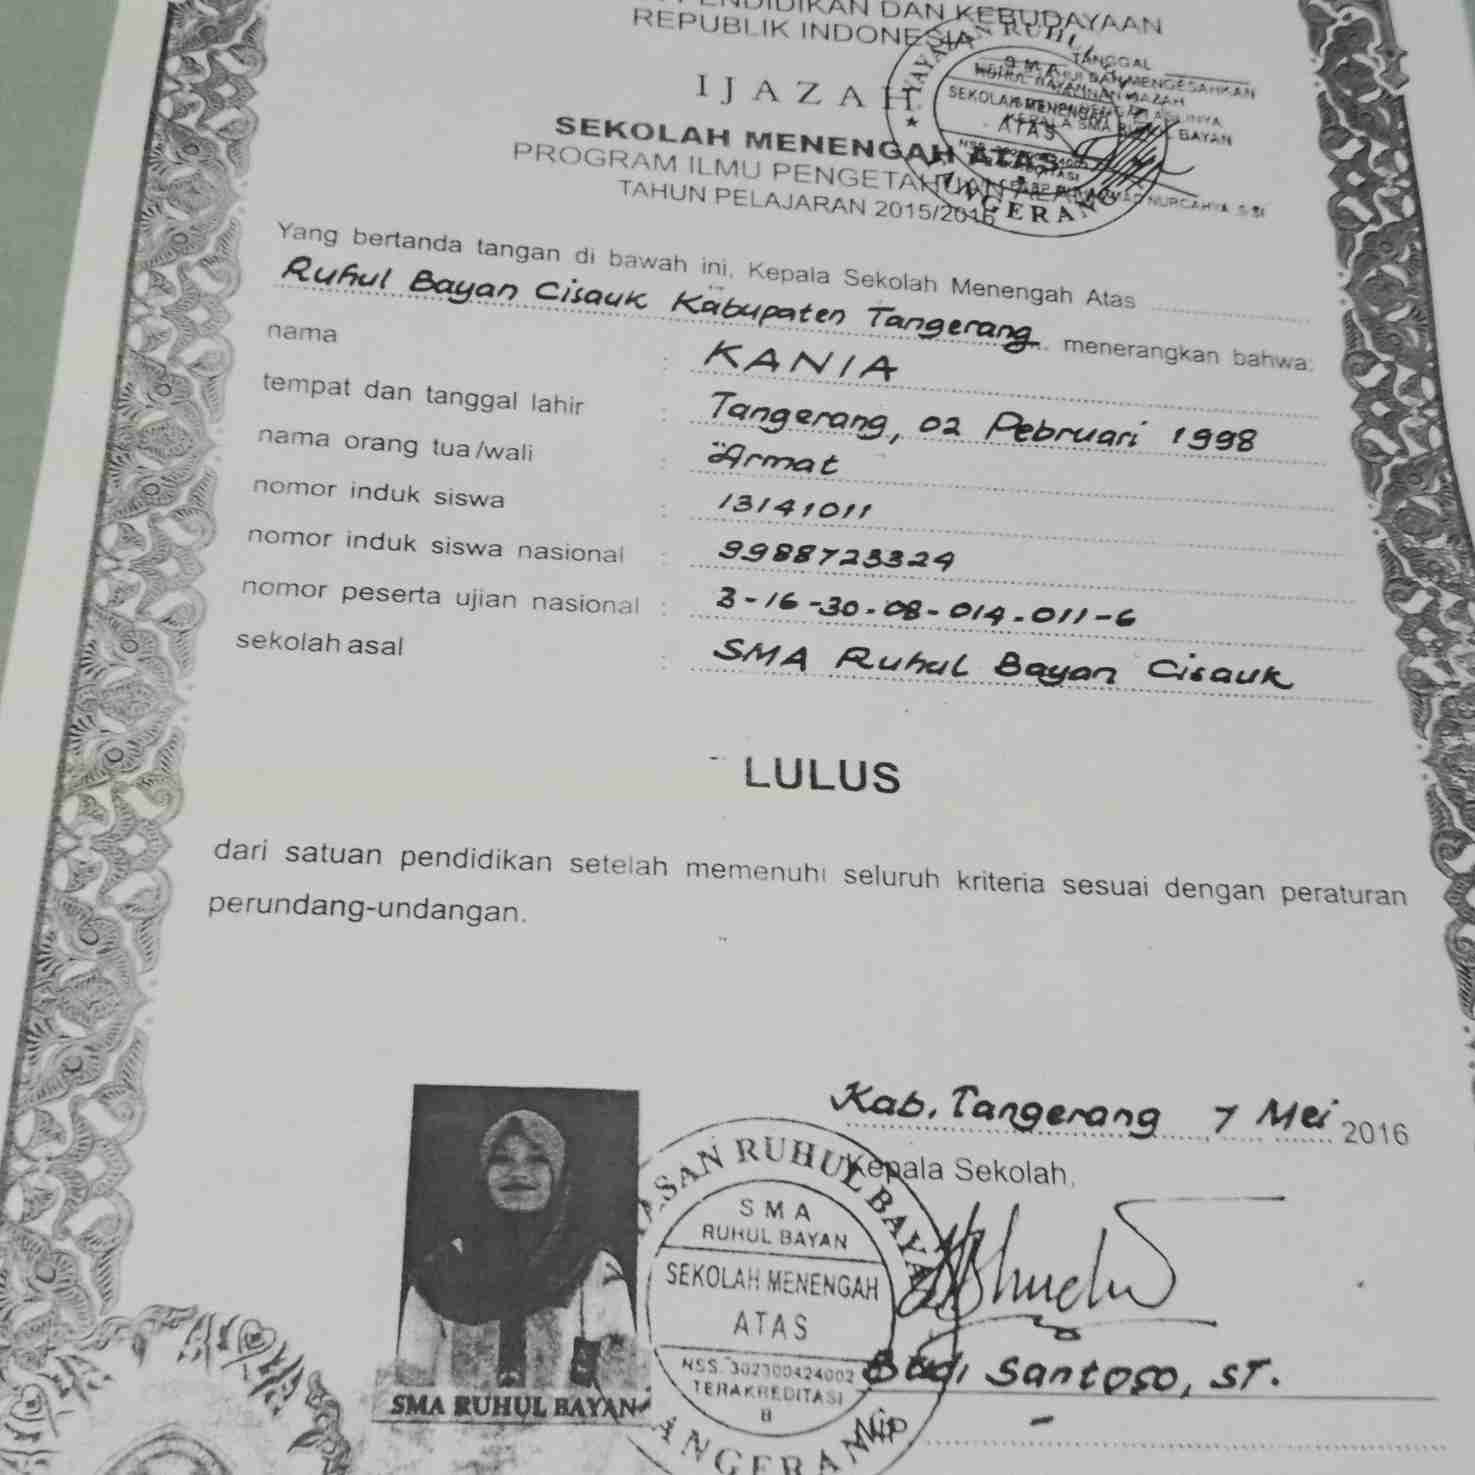 PENDIDIKAN DAN KEBUDAYAAN
REPUBLIK INDONESIA
IJAZAH
SEKOLAH MENENGAH ATAS
PROGRAM ILMU PENGETAHUAN ALAM
TAHUN PELAJARAN 2015/2016
TANGGAL
MENGESAHKAN
KEPALA SMA RUHUL BAYAN
SMA
SEKOLAH MENENGAH
ATAS
Yang bertanda tangan di bawah ini, Kepala Sekolah Menengah Atas
Ruhul Bayan Cisauk Kabupaten Tangerang menerangkan bahwa:
nama : KANIA
tempat dan tanggal lahir : Tangerang, 02 Pebruari 1998
nama orang tua/wali : Armat
nomor induk siswa : 13141011
nomor induk siswa nasional : 9988723324
nomor peserta ujian nasional : 3-16-30-08-014-011-6
sekolah asal : SMA Ruhul Bayan Cisauk
LULUS
dari satuan pendidikan setelah memenuhi seluruh kriteria sesuai dengan peraturan
perundang-undangan.
Kab. Tangerang 7 Mei 2016
Kepala Sekolah,
Budi Santoso, ST.
Nip -
SMA RUHUL BAYAN
YAYASAN RUHUL BAYAN
SMA
RUHUL BAYAN
SEKOLAH MENENGAH
ATAS
NSS. 302300424002
TERAKREDITASI
B
TANGERANG